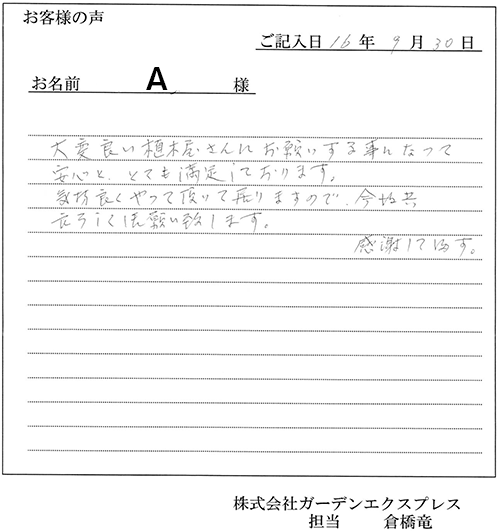 お客様の声
ご記入日 16年 9月 30日
お名前 A 様
大変良い植木屋さんにお願いする事になって
安心と、とても満足しております。
気持良くやって頂いて居りますので、今後共
よろしくお願い致します。
感謝して居ます。
株式会社ガーデンエクスプレス
担当 倉橋竜